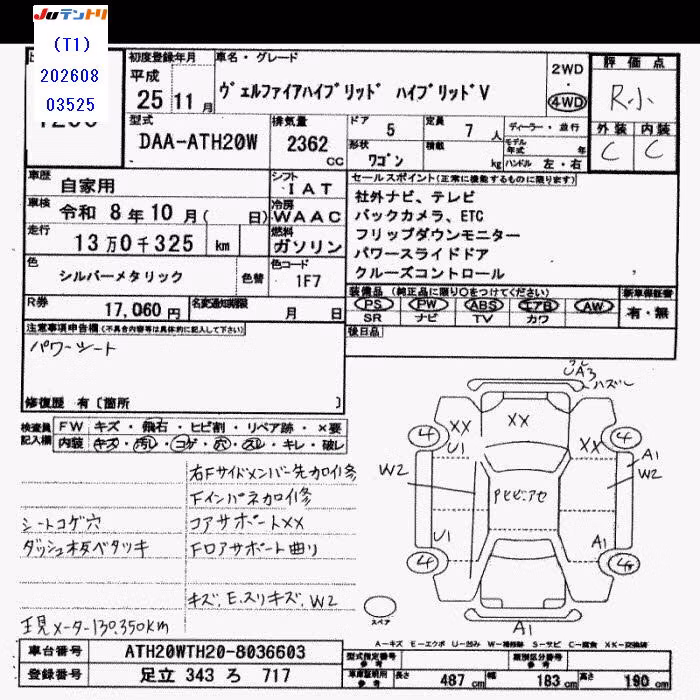 Juテントリ
(T1)
202608
03525
初度登録年月
車名・グレード
評価点
平成
25 11月
ヴェルファイアハイブリッド ハイブリッドV
2WD
・
4WD
R小
型式
DAA-ATH20W
排気量
2362
CC
ドア
5
定員
7人
形状
ワゴン
積載
kg
ディーラー・並行
モデル年式
年
ハンドル 左・右
外装
内装
C
C
車歴
自家用
シフト
IAT
セールスポイント(正常に機能するものに限ります)
車検
令和 8年 10月( 日)
冷房
WAAC
社外ナビ、テレビ
バックカメラ、ETC
フリップダウンモニター
パワースライドドア
クルーズコントロール
走行
13万0千325 km
燃料
ガソリン
色
シルバーメタリック
色替
色コード
1F7
R券
17,060円
名変通知期限
月 日
装備品(純正品に限り○をつけてください)
PS PW ABS エアB AW
SR ナビ TV カワ
新車保証書
有・無
後日品
注意事項申告欄(不具合内容等は具体的に記入して下さい)
パワーシート
修復歴 有〔箇所 〕
検査員記入欄
FW キズ・飛石・ヒビ割・リペア跡・×要
内装 キズ・汚れ・コゲ・穴・スレ・キレ・破レ
右Fサイドメンバー先カロイ修
Fインパネカロイ修
シートコゲ穴
コアサポートXX
ダッシュ板ベタツキ
Fロアサポート曲り
キズ、E、スリキズ、W2
現メーター130,350km
UA3
ハズレ
XX
XX
XX
4
4
U1
A1
W2
W2
U1
A1
4
A1
スペア
A-キズ E-エクボ U-凹み W-補修跡 S-サビ C-腐食 XX-交換済
車台番号
ATH20WTH20-8036603
登録番号
足立 343 ろ 717
型式指定番号
参考
類別区分番号
参考
車庫証明用
参考
長さ
487 cm
幅
183 cm
高さ
190 cm